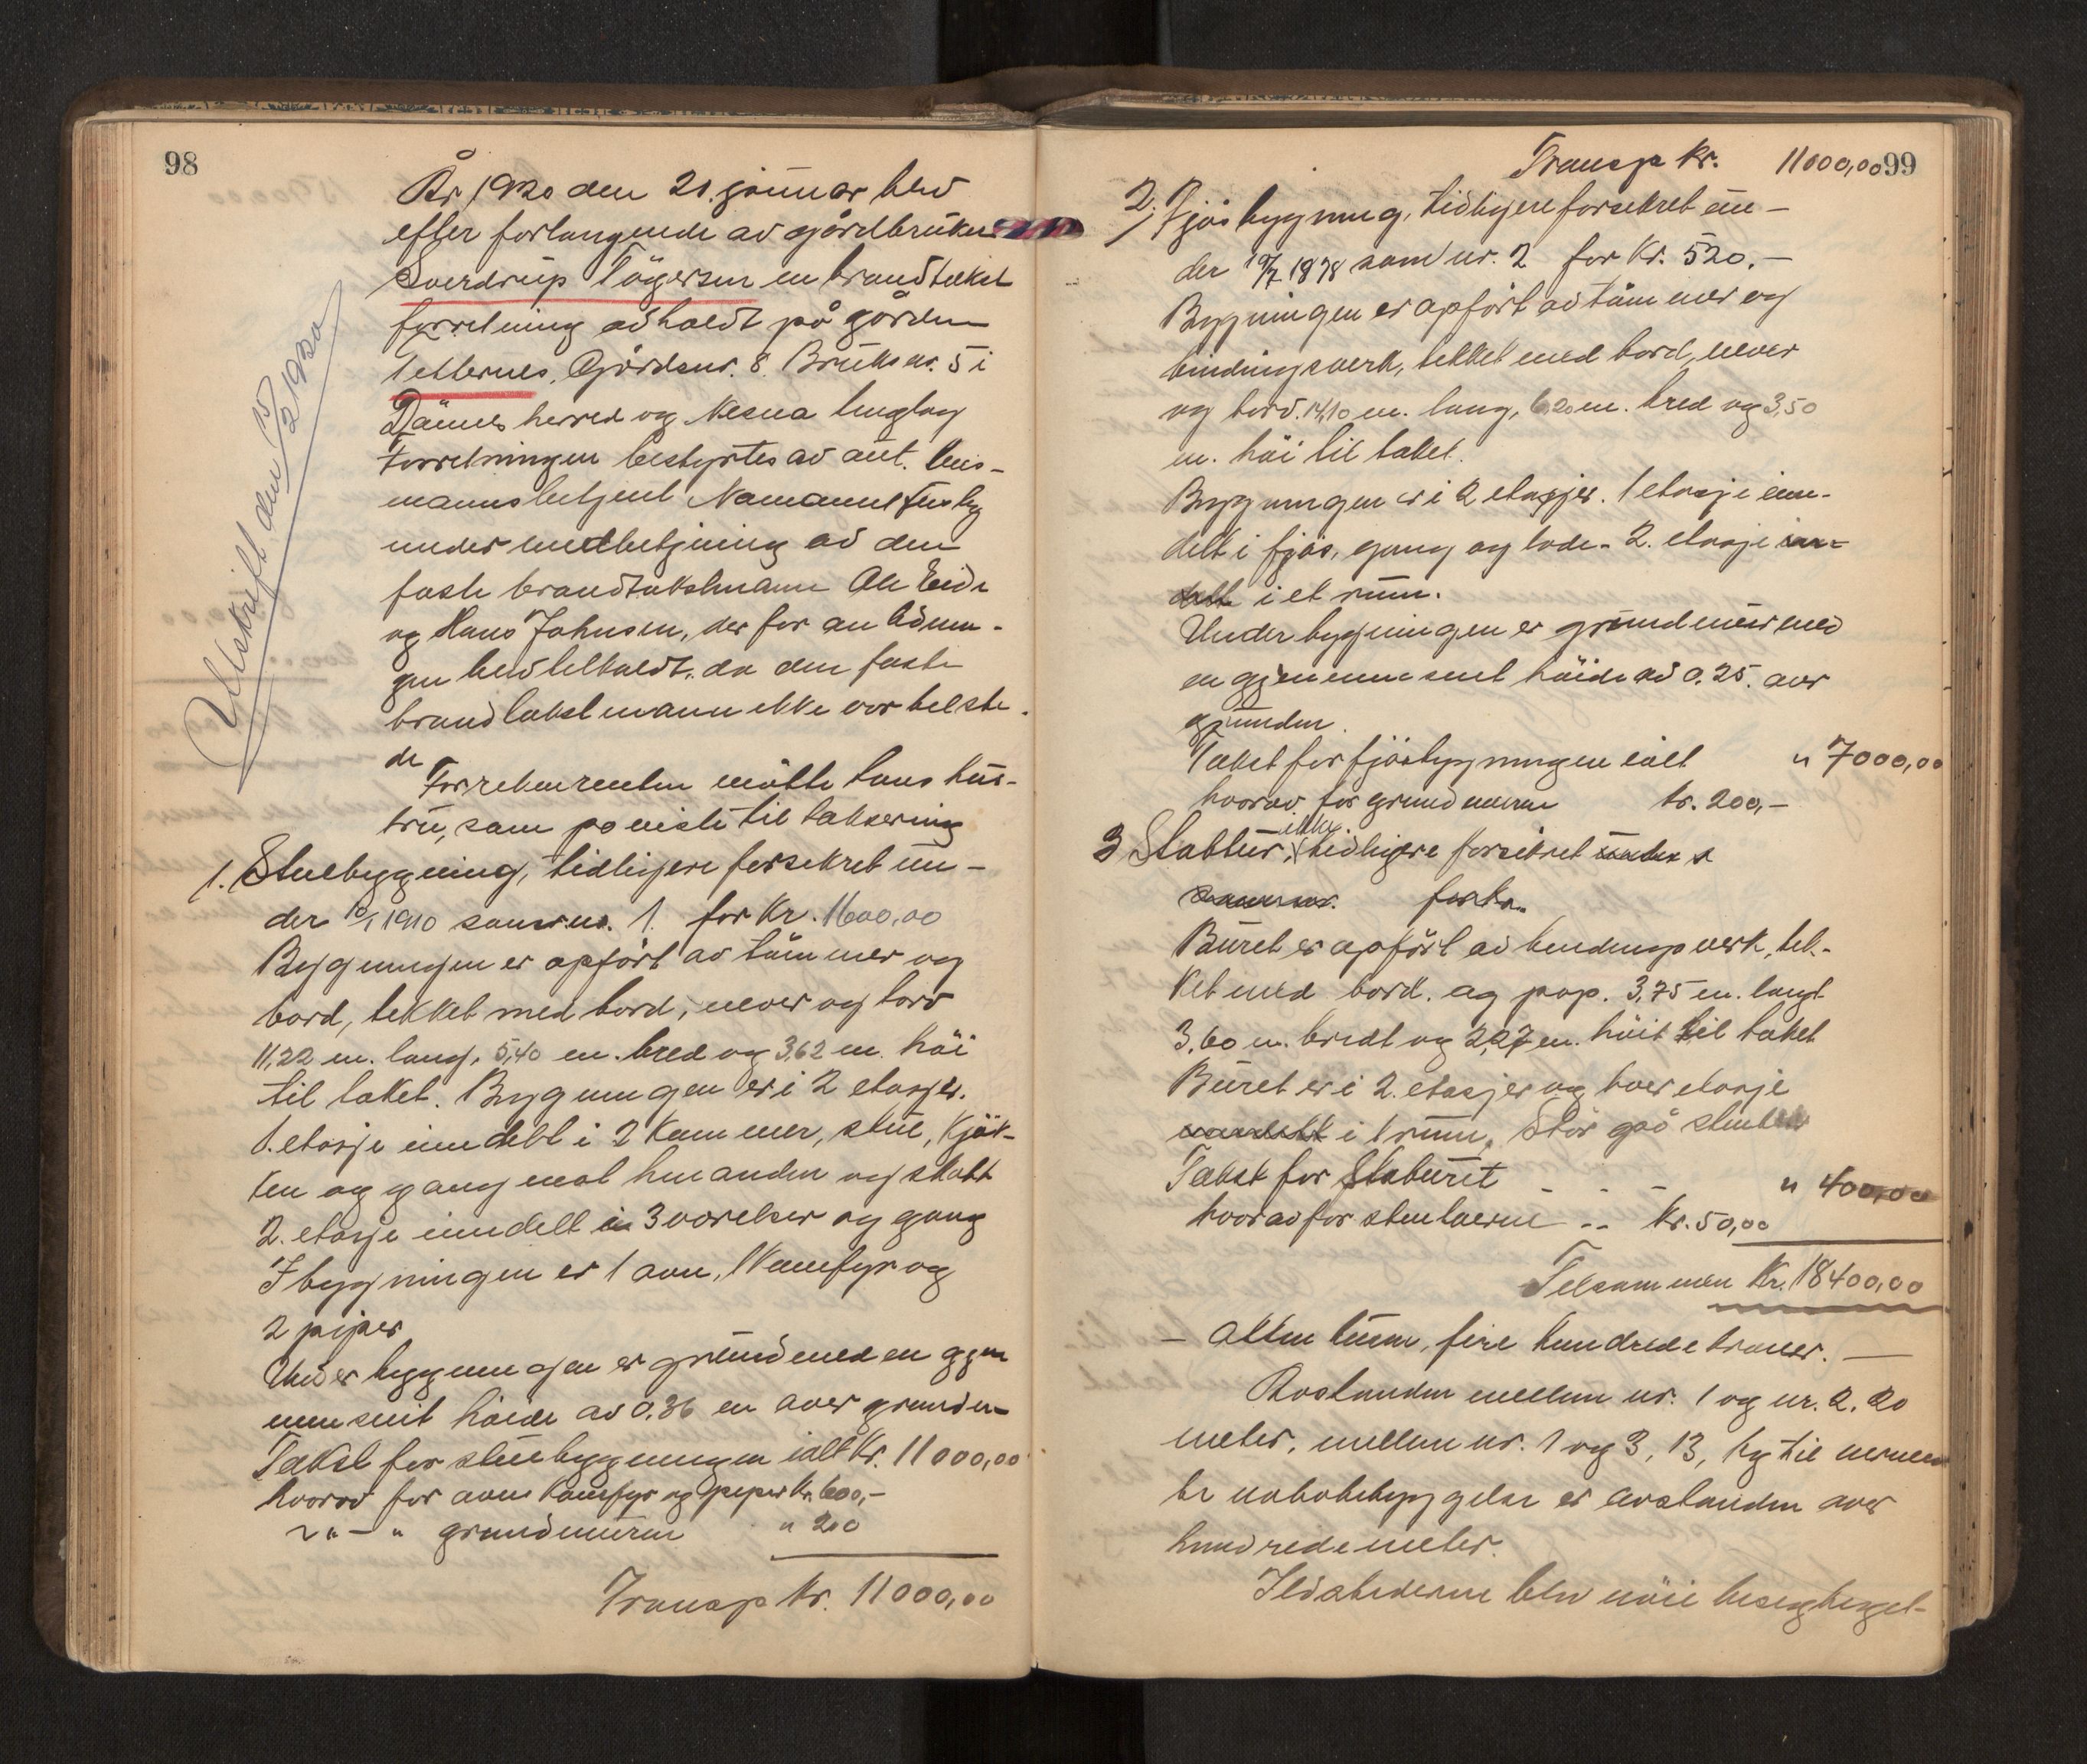 98
År 1920 den 21. januar blev
efter forlangende av gårdbruker
Sverdrup Tøgersen en brandtakst
forretning avholdt på gården
Tetternes, Gårdsnr. 8. Bruksnr. 5 i
Dønnes herred og Nesna tinglag
Forretningen bestyrtes av aut. lens-
mannsbetjent Nomannd Husby
under medbetjening av den
faste brandtakstmann Ole Eide
og Hans Johnsen, der for an lednin-
gen blev tilkaldt, da den faste
brandtakstmann ikke var tilste-
de
For rekvirenten møtte hans hus-
tru, som påviste til taksering
1. Stuebygning, tidligere forsekret un-
der 10/1 1910 som nr. 1. for Kr. 1600,00
Bygningen er opført av tømmer og
bord, tekket med bord, never og torv
11,22 m. lang, 5,40 m. bred og 3,62 m. høi
til taket. Bygningen er i 2 etasjer.
1. etasje inndelt i 2 kammer, stue, kjøk-
ken og gang mot hinanden og skott
2. etasje inndelt i 3 værelser og gang
I bygningen er 1 ovn, 1 komfyr og
2 piper
Under bygningen er grund med en gjen
nemsnit høide av 0,36 m over grunden
Takst for stuebygningen ialt Kr. 11000,00
hvorav for ovn komfyr og piper Kr. 600,-
" - " grundmuren " 200
Transp kr. 11000,00
Utskrift den 15/2 1920
Transp kr. 11000,00 99
2. Fjøsbygning, tidligere forsekret un-
der 10/7 1878 som nr. 2 for Kr. 520.-
Bygningen er opført av tømmer og
bindingsverk, tekket med bord, never
og torv. 14,10 m. lang, 6,20 m. bred og 3,50
m. høi til taket.
Bygningen er i 2 etasjer. 1 etasje inn-
delt i fjøs, gang og lade. 2. etasje inn-
delt i et rum.
Under bygningen er grundmur med
en gjennemsnit høide av 0.25. over
grunden.
Takst for fjøsbygningen ialt " 7000,00
hvorav for grundmuren kr. 200,-
3 Stabbur, ikke tidligere forsikret under
som nr. for kr.
Buret er opført av bindingsverk, tek-
ket med bord. og pap. 3,75 m. langt
3,60 m. bredt og 2,27 m. høit til taket
Buret er i 2. etasjer og hver etasje
inndelt i 1 rum, Står på stenben
Takst for Staburet - - - " 400,00
hvorav for stenbenene .. kr. 50,00
Tilsammen Kr. 18400,00
- Atten tusen, fire hundrede kroner. -
Avstanden mellem nr. 1 og nr. 2. 20
meter, mellem nr. 1 og 3, 13, og til nærmes
te nabobebyggelse er avstanden over
hundrede meter.
Ildstederne blev nøie besigtiget-